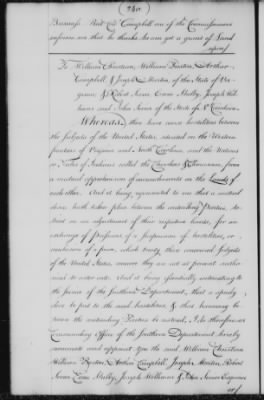 (280)
Business But Col Campbell one of the Commissioners
informs me that he thinks he can get a grant of Land
upon
To William Christian, William Preston, Arthur
Campbell & Joseph Martin of the State of Vir-
ginia, & Robert Sevier Evan Shelby, Joseph Wil-
liams and John Sevier of the State of N Carolina
Whereas there have been hostilities between
the subjects of the United States, extended on the Western
frontiers of Virginia and North Carolina, and the Nations
or Tribes of Indians called the Cherokees & Chickasaws, from
a mutual apprehension of encroachments on the Lands of
each other. And it being represented to me that a mutual
desire hath taken place between the contending Parties, to
treat on an adjustment of their respective limits, for an
exchange of Prisoners, of a suspension of hostilities, or
conclusion of a peace, which treaty, these commercial subjects
of the United States, we are not at present author-
ised to enter into. And it being essentially interesting to
the
of the Southern Department, that a speedy
close be put to the said hostilities, & that harmony be-
tween the contending Parties be restored, I do therefore as
Commanding Officer of the Southern Department hereby
nominate and appoint you the said William Christian
William Preston Arthur Campbell Joseph Martin Robert
Sevier Evan Shelby Joseph Williams & John Sevier Esquires